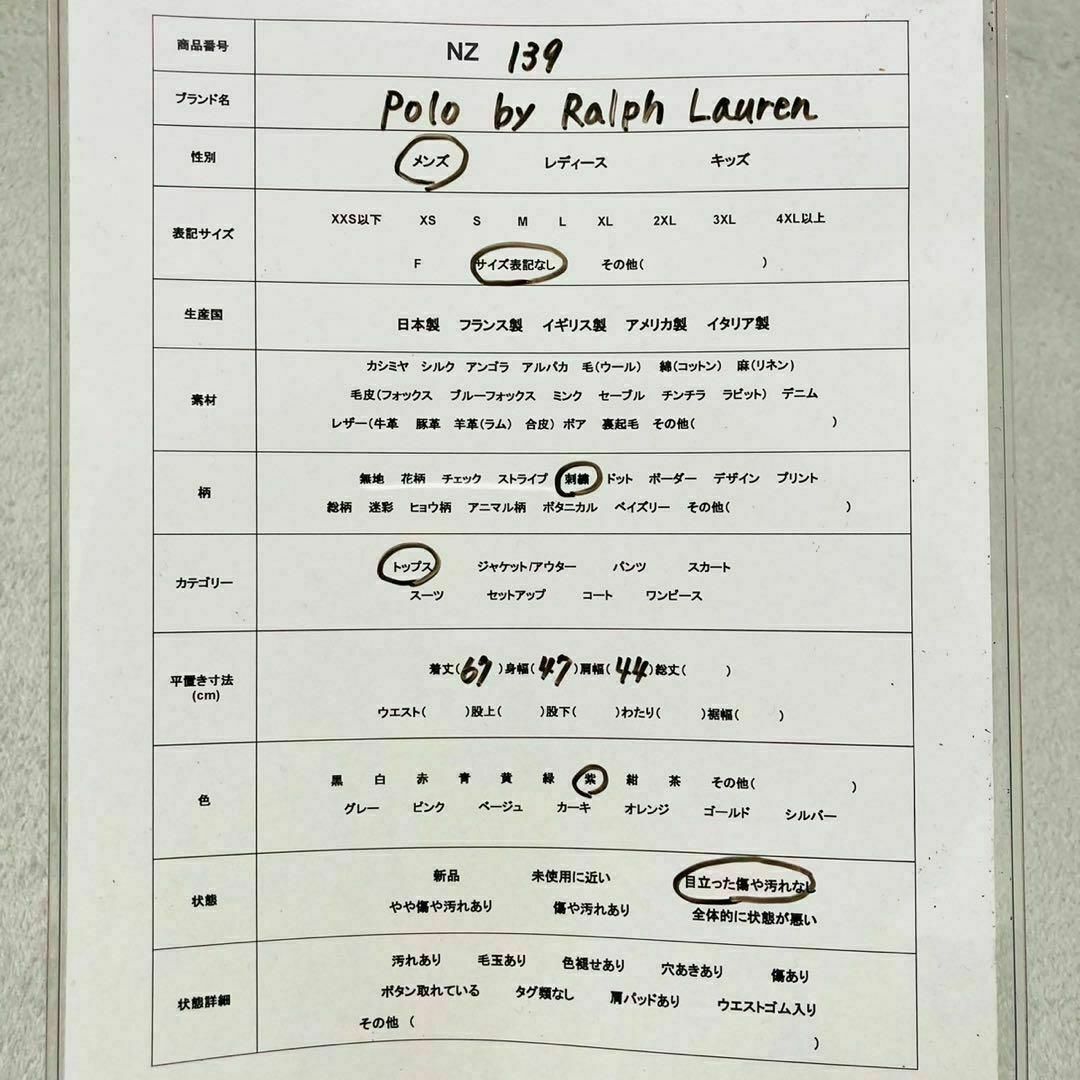 商品番号 NZ 139
ブランド名 Polo by Ralph Lauren
性別 メンズ レディース キッズ
表記サイズ XXS以下 XS S M L XL 2XL 3XL 4XL以上
F サイズ表記なし その他( )
生産国 日本製 フランス製 イギリス製 アメリカ製 イタリア製
素材 カシミヤ シルク アンゴラ アルパカ 毛(ウール) 綿(コットン) 麻(リネン)
毛皮(フォックス ブルーフォックス ミンク セーブル チンチラ ラビット) デニム
レザー(牛革 豚革 羊革(ラム) 合皮) ボア 裏起毛 その他( )
柄 無地 花柄 チェック ストライプ 刺繍 ドット ボーダー デザイン プリント
総柄 迷彩 ヒョウ柄 アニマル柄 ボタニカル ペイズリー その他( )
カテゴリー トップス ジャケット/アウター パンツ スカート
スーツ セットアップ コート ワンピース
平置き寸法
(cm)
着丈(67)身幅(47)肩幅(44)総丈( )
ウエスト( )股上( )股下( )わたり( )裾幅( )
色 黒 白 赤 青 黄 緑 紫 紺 茶 その他( )
グレー ピンク ベージュ カーキ オレンジ ゴールド シルバー
状態 新品 未使用に近い 目立った傷や汚れなし
やや傷や汚れあり 傷や汚れあり 全体的に状態が悪い
状態詳細 汚れあり 毛玉あり 色褪せあり 穴あきあり 傷あり
ボタン取れている タグ類なし 肩パッドあり ウエストゴム入り
その他 ( )